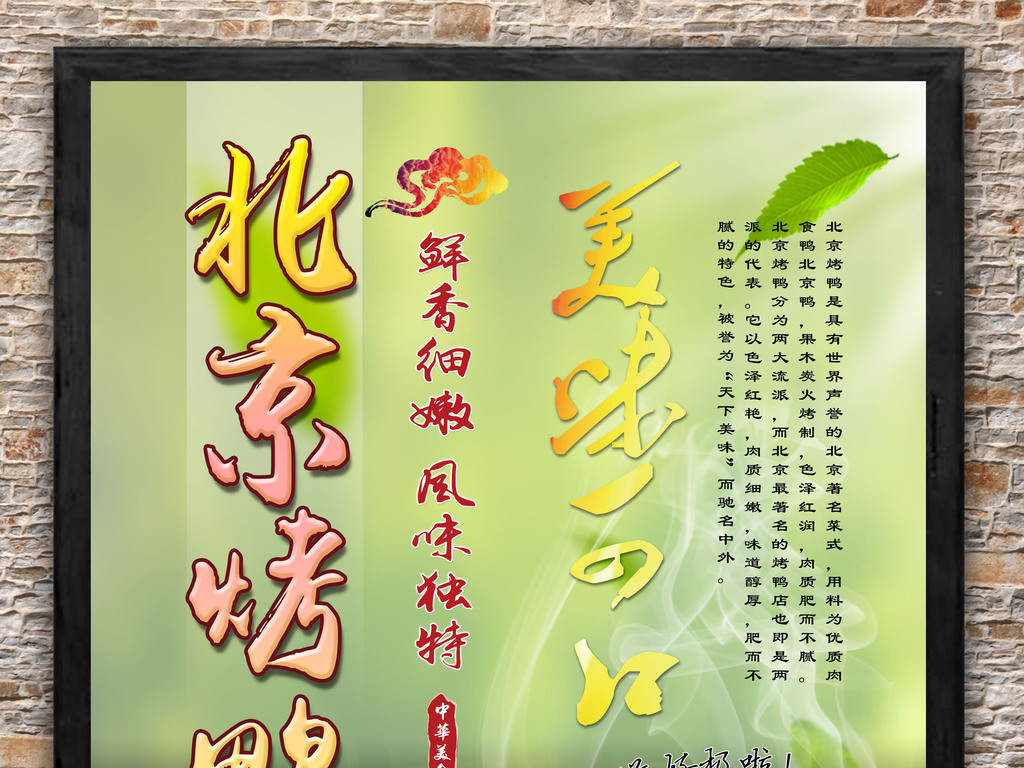 北京烤鸭
鲜香细嫩 风味独特
中華美食
美味可口
北京烤鸭是具有世界声誉的北京著名菜式，用料为优质肉
食鸭北京鸭，果木炭火烤制，色泽红润，肉质肥而不腻。
北京烤鸭分为两大流派，而北京最著名的烤鸭店也即是两
派的代表。它以色泽红艳，肉质细嫩，味道醇厚，肥而不
腻的特色，被誉为“天下美味”而驰名中外。